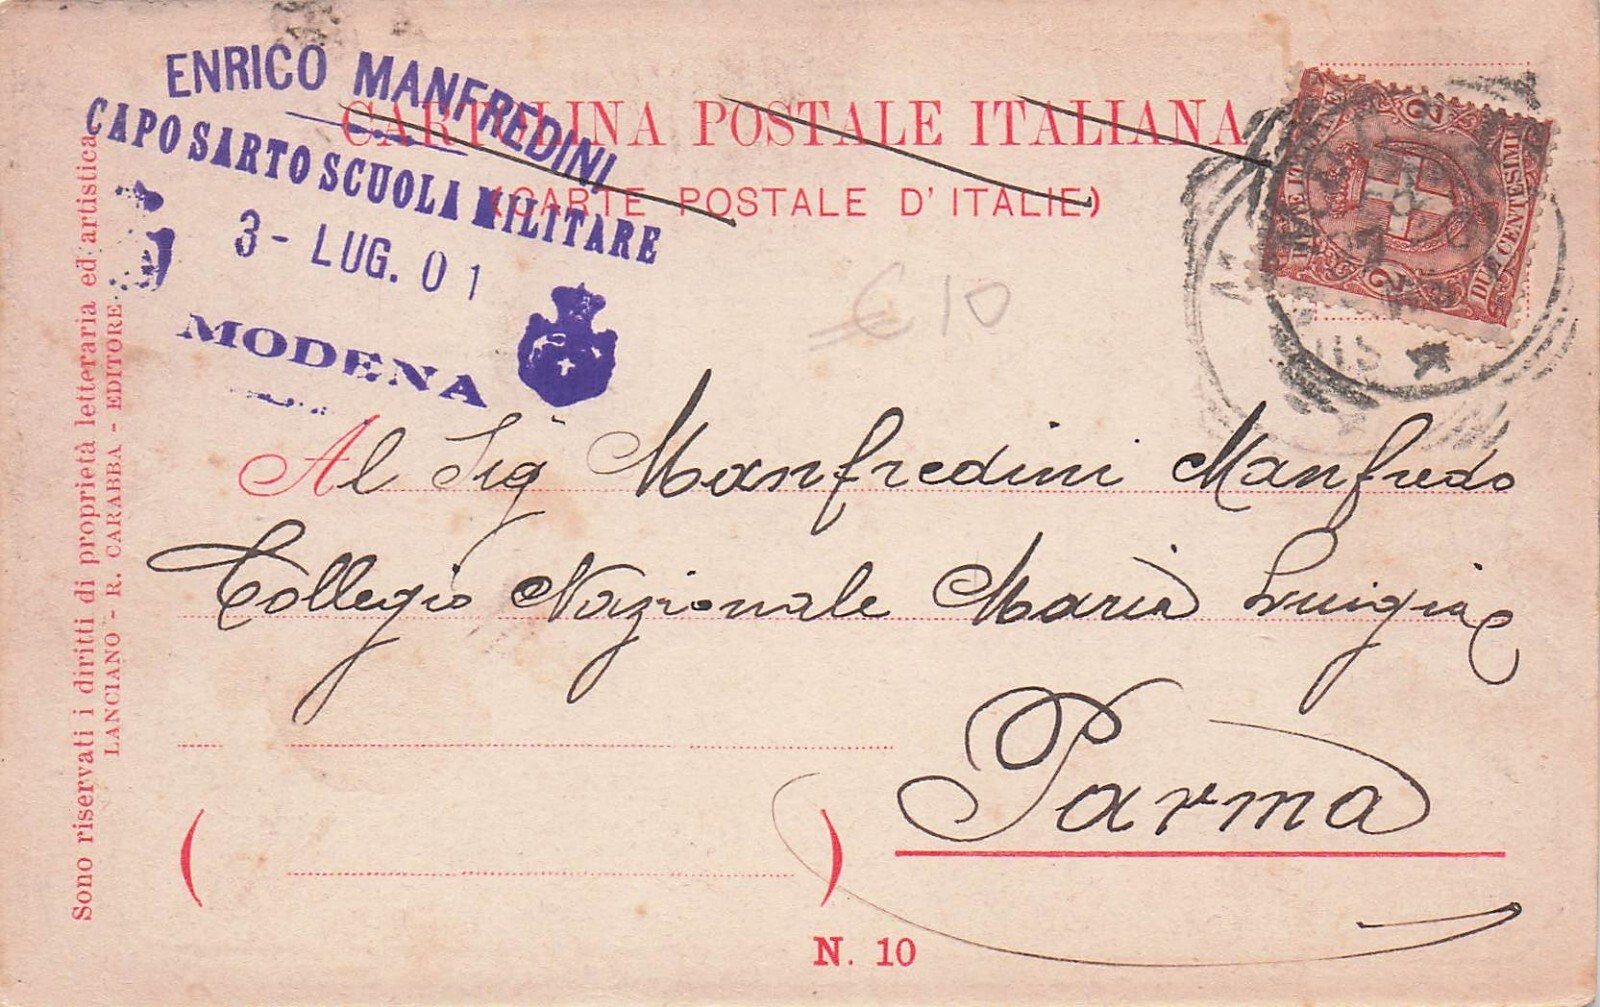 ENRICO MANFREDINI
CAPO SARTO SCUOLA MILITARE
3 - LUG. 01
MODENA
CARTOLINA POSTALE ITALIANA
(CARTE POSTALE D'ITALIE)
DUE CENTESIMI
2
2
€ 10
Al Sig Manfredini Manfredo
Collegio Nazionale Maria Luigia
Parma
( )
N. 10
Sono riservati i diritti di proprietà letteraria ed artistica
LANCIANO - R. CARABBA - EDITORE